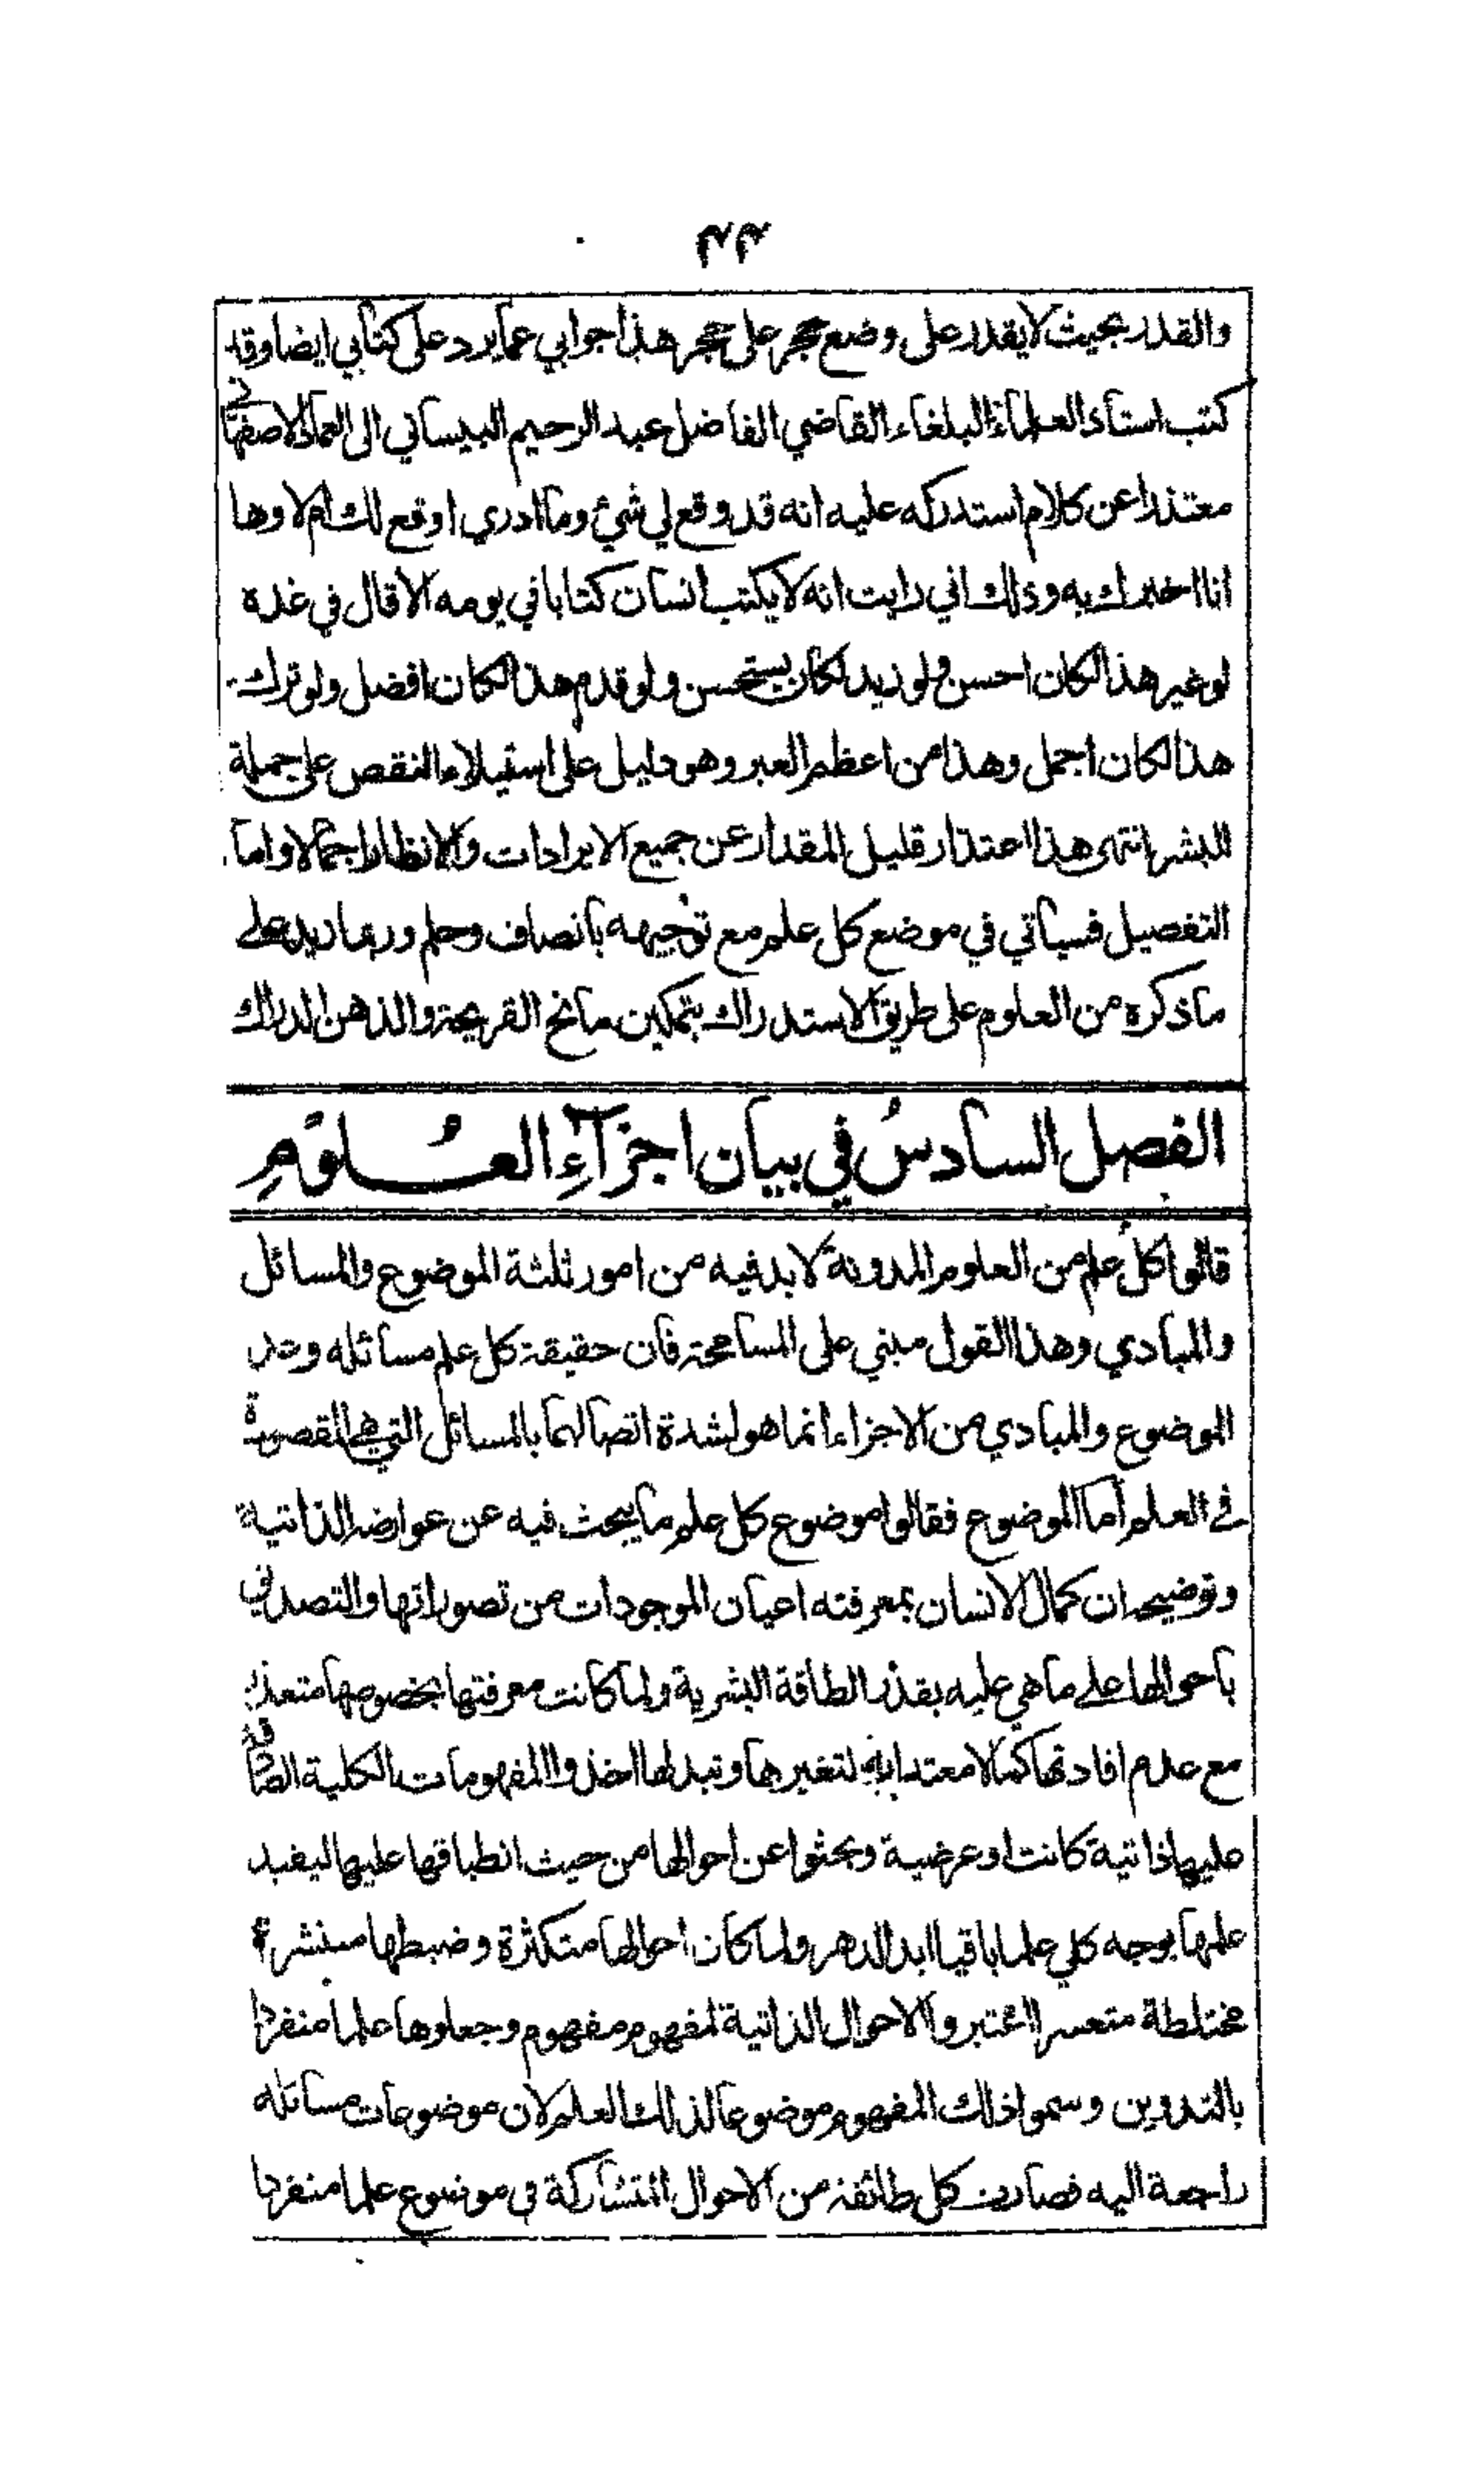 ٤٣
والقدر بحيث لا يقدر على وضع حجر على حجر هذا جوابي عما يرد على كتابي ايضا وقد
كتب استاذ العلماء البلغاء القاضي الفاضل عبد الرحيم البيساني الى العماد الاصفهاني
معتذرا عن كلام استدركه عليه انه قد وقع لي شئ وما ادري اوقع لك ام لا وها
انا اخبرك به وذلك اني رايت انه لا يكتب انسان كتابا في يومه الا قال في غده
لو غير هذا لكان احسن ولو زيد لكان يستحسن ولو قدم هذا لكان افضل ولو ترك
هذا لكان اجمل وهذا من اعظم العبر وهو دليل على استيلاء النقص على جملة
البشر انتهى هذا اعتذار قليل المقدار عن جميع الايرادات والانظار اجمالا واما
التفصيل فسياتي في موضع كل علم مع توجيهه بانصاف وحلم وربما زيد على
ما ذكره من العلوم على طريق الاستدراك بتمكين مانح القريحة والذهن الدراك
الفصل السادس في بيان اجزآء العلوم
قالوا كل علم من العلوم المدونة لا بد فيه من امور ثلثة الموضوع والمسائل
والمبادي وهذا القول مبني على المسامحة فان حقيقة كل علم مسائله وعد
الموضوع والمبادي من الاجزاء انما هو لشدة اتصالهما بالمسائل التي هي المقصودة
في العلم أما الموضوع فقالوا موضوع كل علم ما يبحث فيه عن عوارضه الذاتية
وتوضيحه ان كمال الانسان بمعرفته اعيان الموجودات من تصوراتها والتصديق
باحوالها على ما هي عليه بقدر الطاقة البشرية ولما كانت معرفتها بخصوصها متعذرة
مع عدم افادتها كمالا معتدا به لتغيرها وتبدلها اخذوا المفهومات الكلية الصادقة
عليها ذاتية كانت او عرضية وبحثوا عن احوالها من حيث انطباقها عليها ليفيد
علمها بوجه كلي علما باقيا ابد الدهر ولما كان احوالها متكثرة وضبطها منتشرة
مختلطة متعسرا اعتبروا الاحوال الذاتية لمفهوم مفهوم وجعلوها علما منفردا
بالتدوين وسموا ذلك المفهوم موضوعا لذلك العلم لان موضوعات مسائله
راجعة اليه فصارت كل طائفة من الاحوال المتشاركة في موضوع علما منفردا